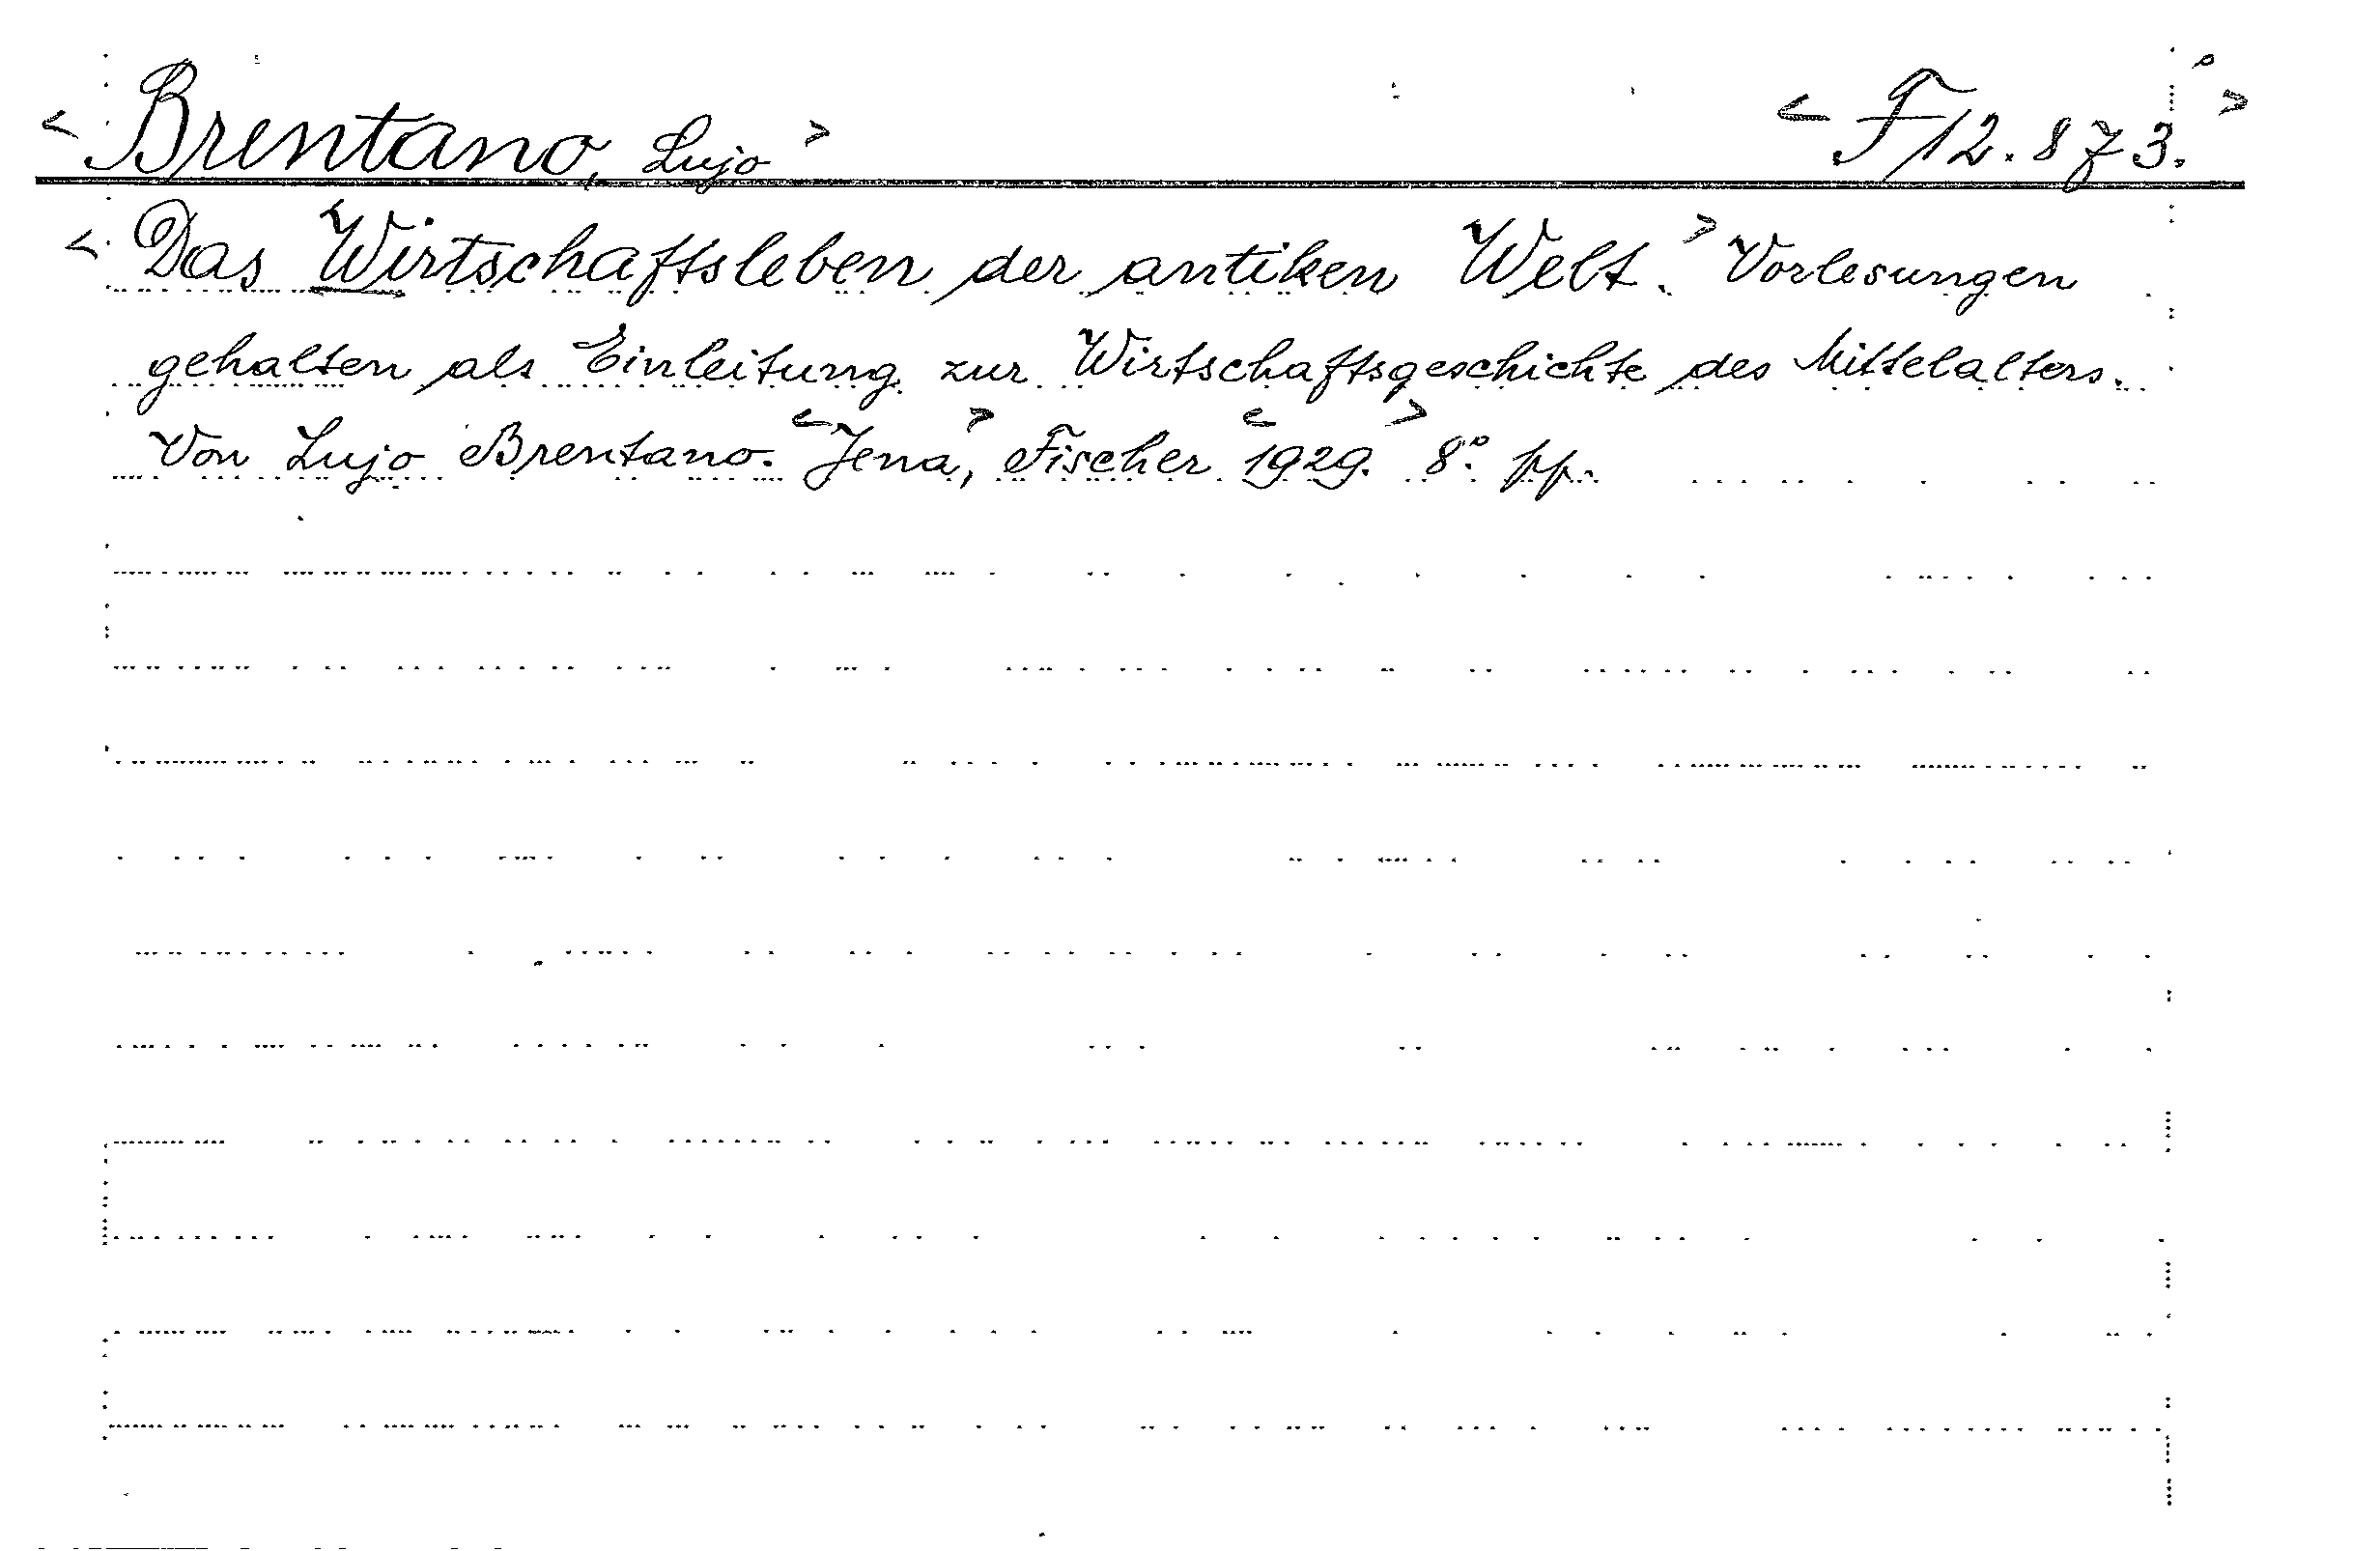 < Brentano, Lujo > < F 12.873. >
< Das Wirtschaftsleben der antiken Welt. > Vorlesungen
gehalten als Einleitung zur Wirtschaftsgeschichte des Mittelalters.
Von Lujo Brentano. < Jena, > Fischer < 1929. > 8° pp.